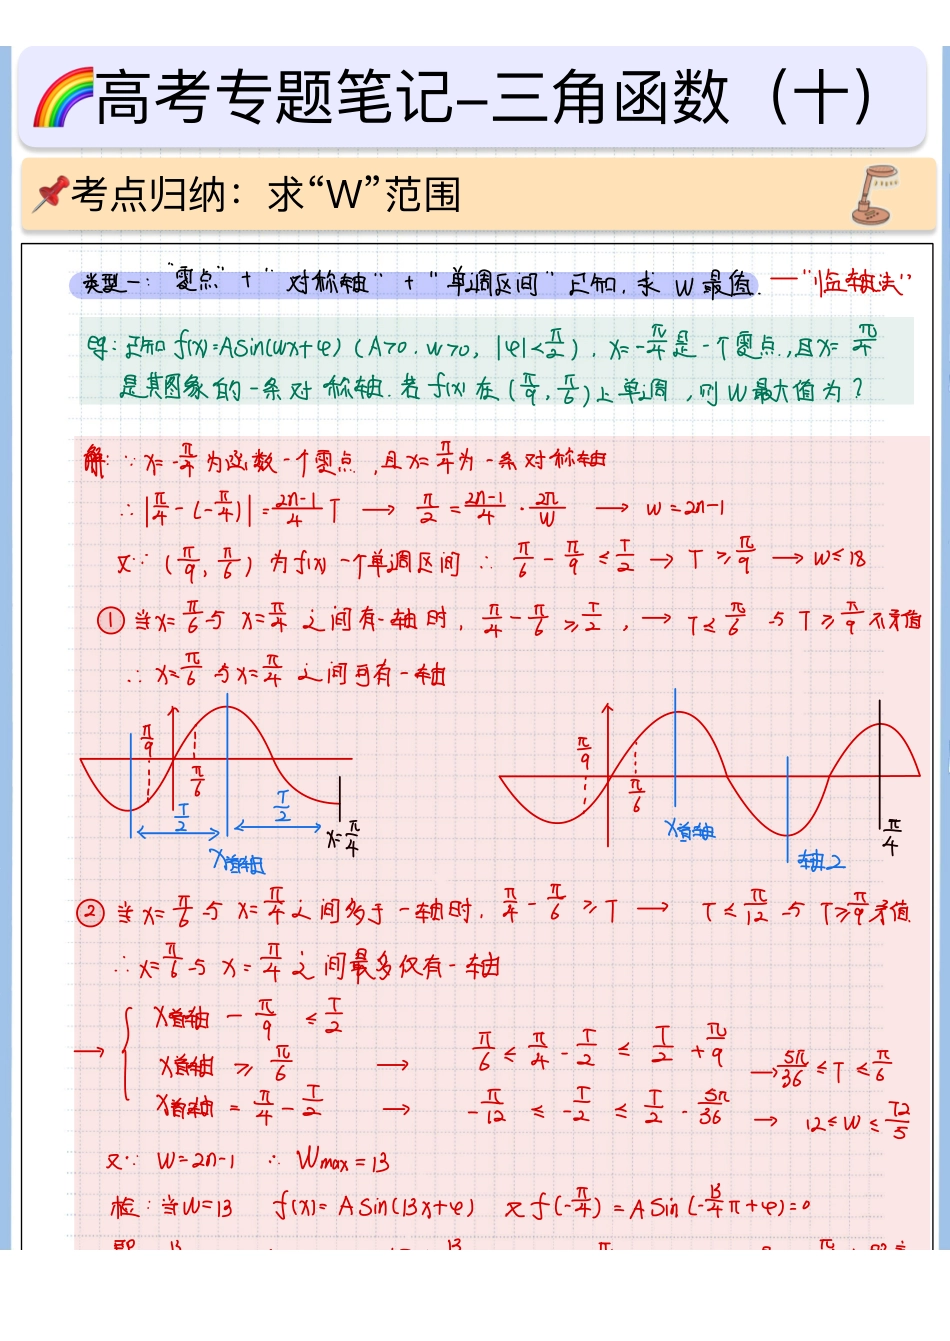 高考专题笔记–三角函数（十）
考点归纳：求“W”范围
类型一：“零点”+“对称轴”+“单调区间”已知，求 W 最值. —“临轴法”
例：已知 f(x)=ASin(Wx+φ)（A>0, W>0, |φ|<π/2），x=-π/4是一个零点，且x=π/4
是其图象的一条对称轴. 若 f(x) 在 (π/9, π/6)上单调，则 W 最大值为？
解：∵ x=-π/4 为函数一个零点，且x=π/4为一条对称轴
∴ |π/4-(-π/4)|=2n-1/4 T → π/2=2n-1/4·2π/W → W=2n-1
又∵ (π/9, π/6) 为f(x)一个单调区间 ∴ π/6-π/9≤T/2 → T≥π/9 → W≤18
① 当x=π/6与 x=π/4 之间有一轴时，π/4-π/6≥T/2, → T≤π/6 与 T≥π/9不矛盾
∴ x=π/6与x=π/4 之间可有一轴
π/9 π/6 T/2 T/2 x=π/4 X首轴
π/9 π/6 X首轴 轴2 π/4
② 当 x=π/6 与 x=π/4之间多于一轴时，π/4-π/6≥T → T≤π/12 与 T≥π/9矛盾.
∴ x=π/6与 x=π/4 之间最多仅有一轴
X首轴 - π/9 ≤ T/2
→ { X首轴 ≥ π/6 → π/6≤π/4-T/2≤T/2+π/9 → 5π/36≤T≤π/6
X首轴 = π/4-T/2 → -π/12≤-T/2≤T/2-5π/36 → 12≤W≤72/5
又∵ W=2n-1 ∴ Wmax=13
检：当W=13 f(x)=ASin(13x+φ) 又 f(-π/4)=ASin(-13/4π+φ)=0